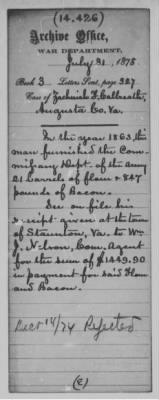 (14.426)
Archive Office,
WAR DEPARTMENT,
July 31, 1875
Book 3 Letters Sent, page 327
Case of Zachariah F. Calbreath,
Augusta Co. Va.
In the year 1863, this
man furnished the Com-
missary Dept. of the Army
21 barrels of flour & 847
pounds of Bacon.
See on file his
receipt given at the town
of Staunton, Va. to Wm
J. Nelson, Com. Agent
for the sum of $1449.90
in payment for said Flour
and Bacon.
Decr 14/74 Rejected
(E)